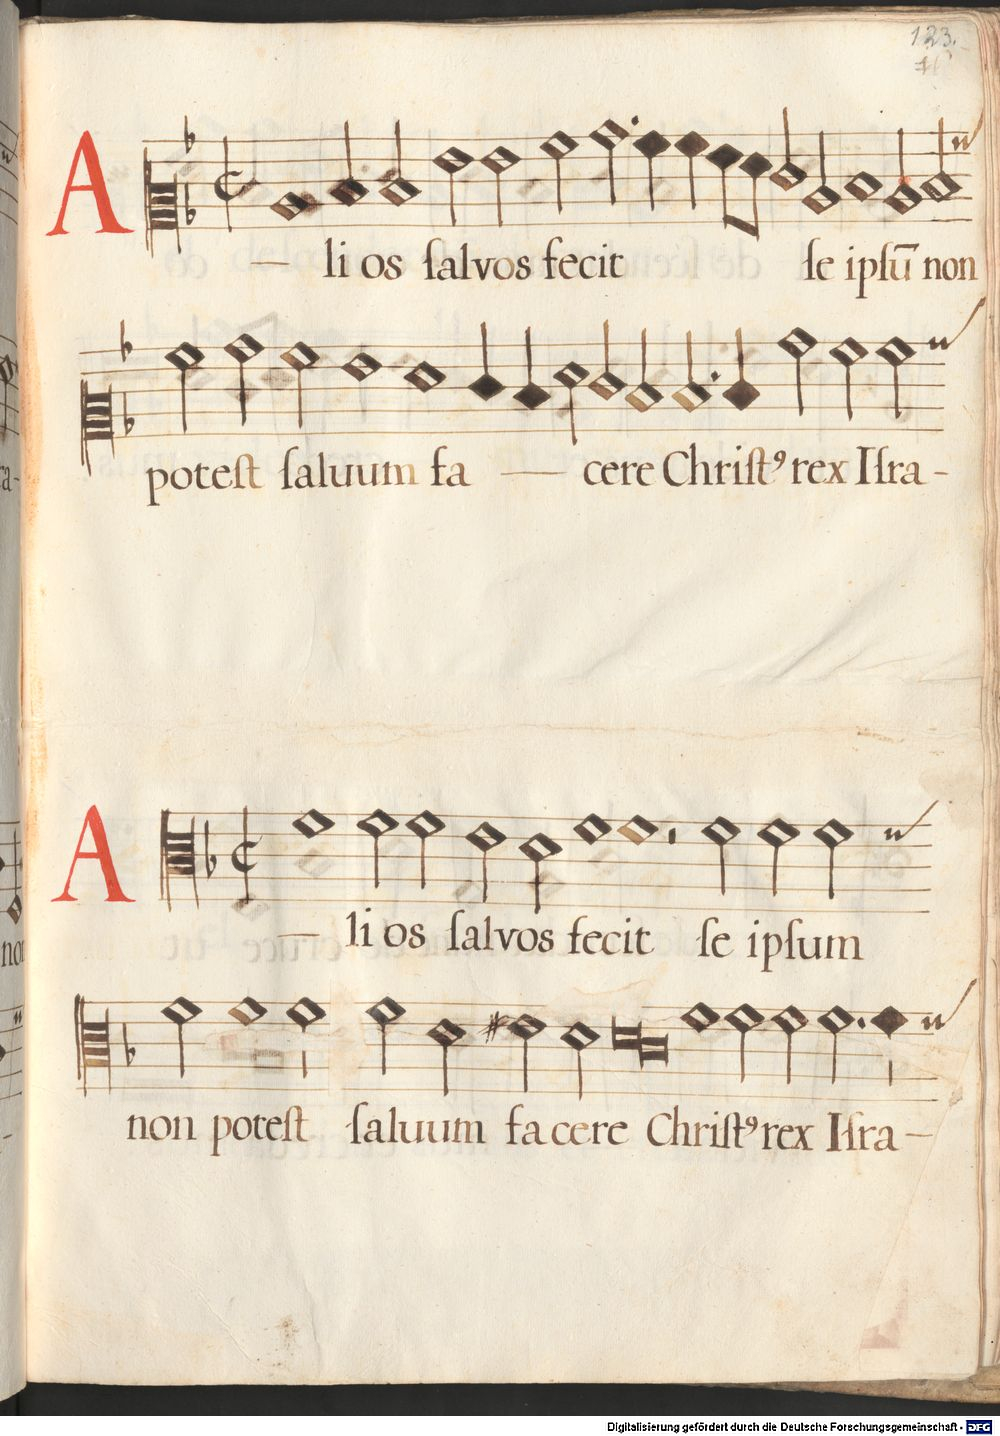 123.
A
li os ſalvos fecit ſe ipſū non
poteſt ſaluum fa cere Chriſtꝰ rex Iſra-
A
li os ſalvos fecit ſe ipſum
non poteſt ſaluum facere Chriſtꝰ rex Iſra-
Digitalisierung gefördert durch die Deutsche Forschungsgemeinschaft - DFG